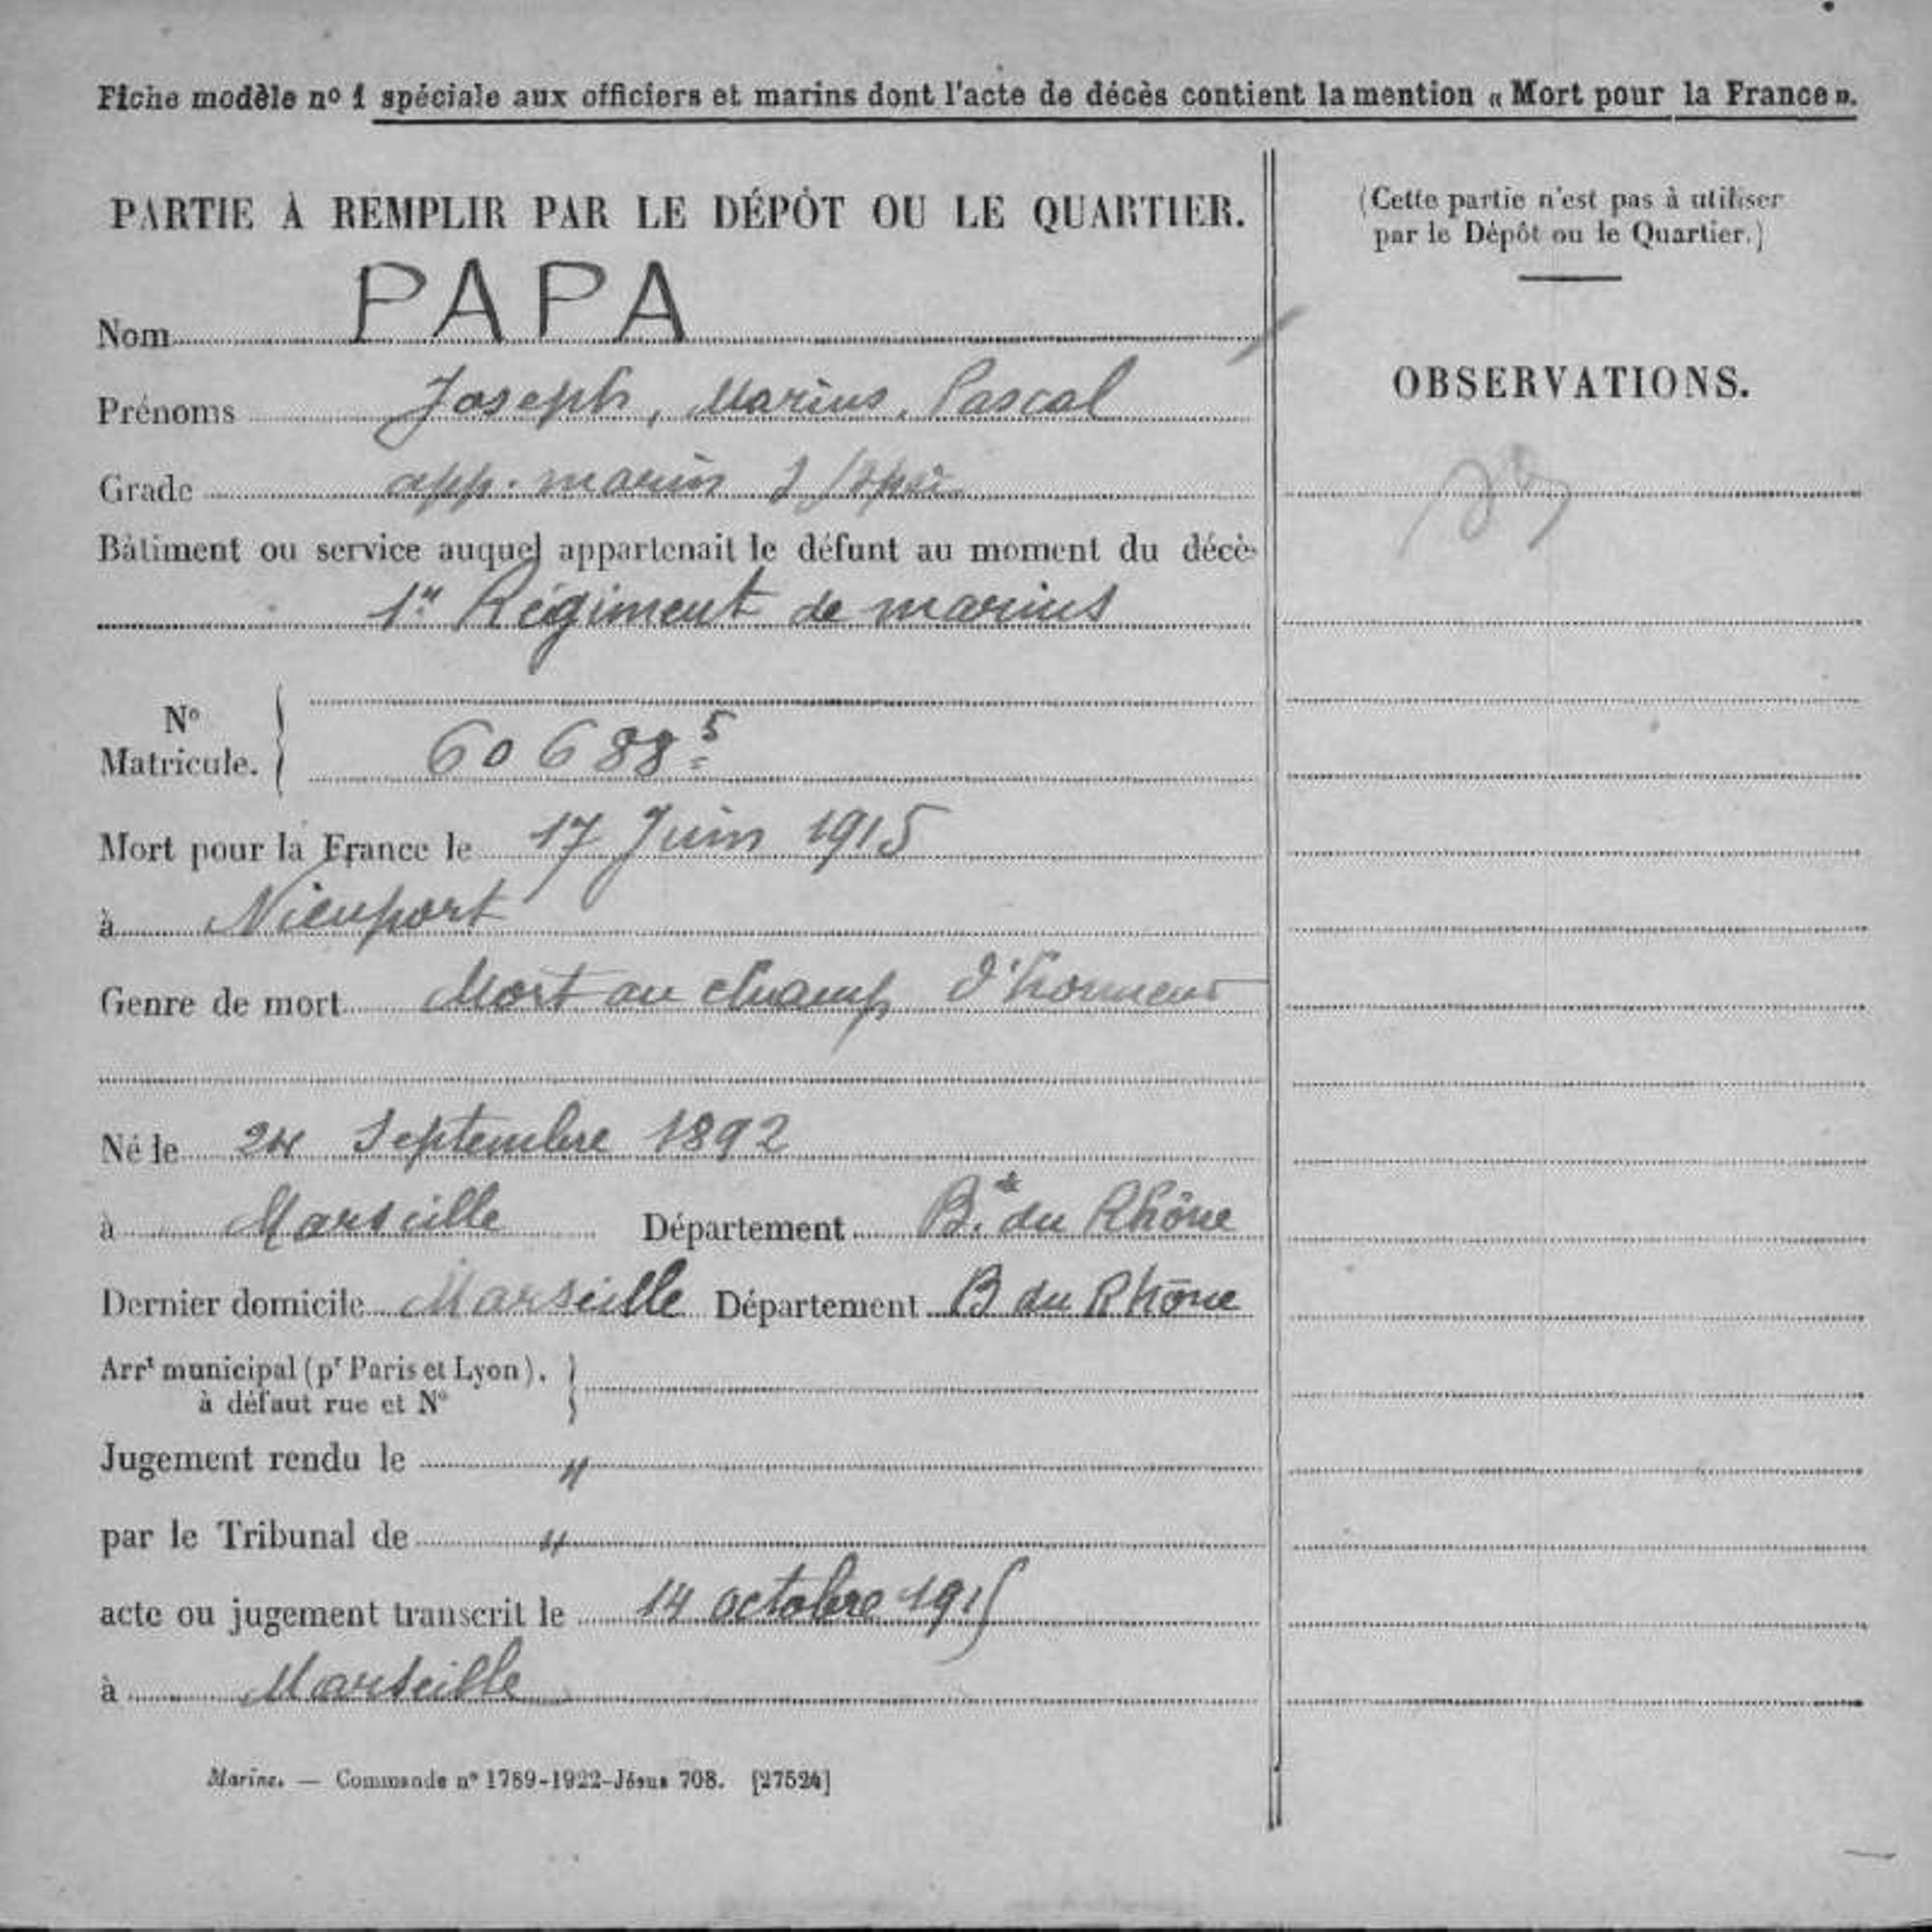 Fiche modèle nº 1 spéciale aux officiers et marins dont l'acte de décès contient la mention « Mort pour la France ».
PARTIE À REMPLIR PAR LE DÉPÔT OU LE QUARTIER.
Nom PAPA
Prénoms Joseph, Marius, Pascal
Grade app. marin
Bâtiment ou service auquel appartenait le défunt au moment du décès
1er Régiment de marins
Nº
Matricule. 60688 5
Mort pour la France le 17 Juin 1915
à Nieuport
Genre de mort Mort au champ d'honneur
Né le 24 Septembre 1892
à Marseille Département B. du Rhône
Dernier domicile Marseille Département B du Rhône
Arrt municipal (pr Paris et Lyon),
à défaut rue et Nº
Jugement rendu le "
par le Tribunal de "
acte ou jugement transcrit le 14 octobre 1915
à Marseille
Marine. — Commande nº 1789-1922-Jésus 708. [27524]
(Cette partie n'est pas à utiliser
par le Dépôt ou le Quartier.)
OBSERVATIONS.